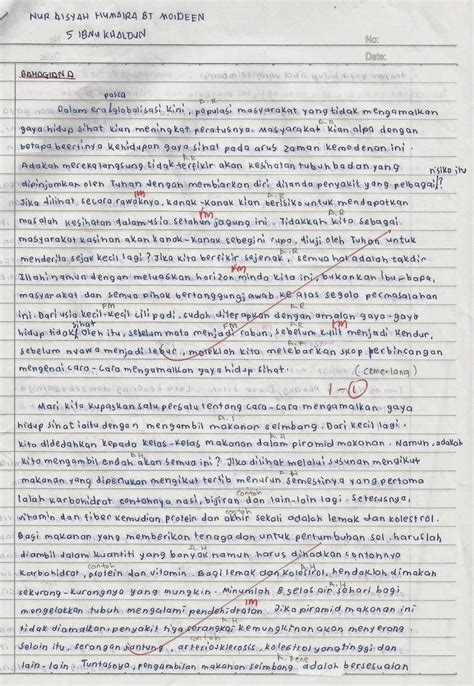 NUR AISYAH HUMAIRA BT MOIDEEN
5 IBNU KHALDUN
No:
Date:
BAHAGIAN D
pasca
Dalam era globalisasi kini, populasi masyarakat yang tidak mengamalkan
gaya hidup sihat kian meningkat peratusnya. Masyarakat kian alpa dengan
betapa beertinya kehidupan gaya sihat pada arus zaman kemodenan ini.
Adakah mereka langsung tidak terfikir akan kesihatan tubuh badan yang
dipinjamkan oleh Tuhan dengan membiarkan diri dilanda penyakit yang pelbagai?
risiko itu
Jika dilihat secara rawaknya, kanak-kanak kian berisiko untuk mendapatkan
masalah kesihatan dalam usia setahun jagung ini. Tidakkah kita sebagai
masyarakat kasihan akan kanak-kanak sebegini rupa, diuji oleh Tuhan untuk
menderita sejak kecil lagi? Jika kita berfikir sejenak, semua hal adalah takdir
Illahi namun dengan meluaskan horizon minda kita ini, bukankan ibu-bapa,
masyarakat dan semua pihak bertanggungjawab ke atas segala permasalahan
ini. Dari usia kecil-kecil cili padi, sudah diterapkan dengan amalan gaya-gaya
hidup tidak sihat oleh itu, sebelum mata menjadi rabun, sebelum kulit menjadi kendur,
sebelum nyawa menjadi lebur, moleklah kita melebarkan skop perbincangan
mengenai cara-cara mengamalkan gaya hidup sihat.
(cemerlang)
Mari kita kupaskan satu persatu tentang cara-cara mengamalkan gaya
hidup sihat iaitu dengan mengambil makanan seimbang. Dari kecil lagi
kita didedahkan kepada kelas-kelas makanan dalam piramid makanan. Namun, adakah
kita mengambil endah akan semua ini? Jika dilihat melalui susunan mengikut
makanan yang diperlukan mengikut tertib menurun semestinya yang pertama
ialah karbohidrat contohnya nasi, bijiran dan lain-lain lagi. Seterusnya,
vitamin dan fiber kemudian protein dan akhir sekali adalah lemak dan kolestrol.
Bagi makanan yang memberikan tenaga dan untuk pertumbuhan sel haruslah
diambil dalam kuantiti yang banyak namun harus dihadkan contohnya
karbohidrat, protein dan vitamin. Bagi lemak dan kolestrol, hendaklah dimakan
sekurang-kurangnya yang mungkin. Minumlah 8 gelas air sehari bagi
mengelakkan tubuh mengalami pendehidratan. Jika piramid makanan ini
tidak diamalkan, penyakit tiga serangkai kemungkinan akan menyerang.
Selain itu, serangan jantung, arteriosklerosis, kolestrol yang tinggi dan
lain-lain. Tuntasnya, pengambilan makanan seimbang adalah bersesuaian